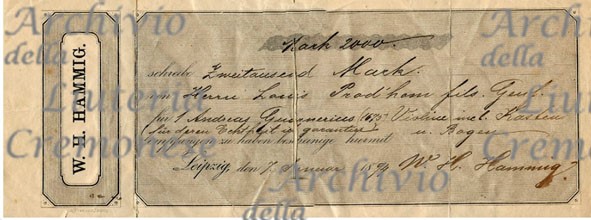 Archivio
della
Liuteria
Cremonese
Archivio
della
Liuteria
Cremonese
W. H. HAMMIG.
Mark 2000.
schreibe Zweitausend Mark.
von Herrn Louis Prod'hom fils. Genf.
für 1 Andreas Guarnerius (1675) Violine met. Kasten
für deren Echtheit ich garantire u. Bogen
empfangen zu haben bescheinige hiermit
Leipzig, den 7. Januar 1894 W. H. Hammig.